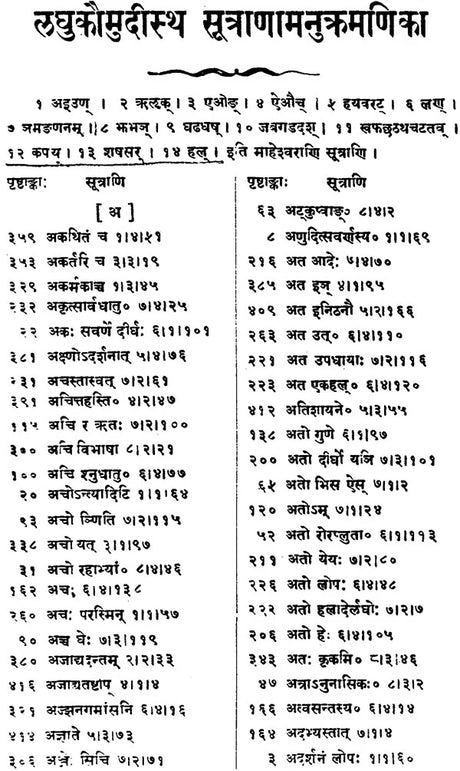 लघुकौमुदीस्थ सूत्राणामनुक्रमणिका
१ अइउण् । २ ऋलृक्। ३ एओङ्। ४ ऐऔच् । ५ हयवरट् । ६ लण् ।
७ ञमङणनम् । ८ झभञ् । ९ घढधष् । १० जबगडदश् । ११ खफछठथचटतव् ।
१२ कपय् । १३ शषसर् । १४ हल् । इति माहेश्वराणि सूत्राणि ।
पृष्टाङ्काः सूत्राणि
[ अ ]
३५९ अकथितं च १।४।५१
३५३ अकर्तरि च ३।३।१९
३२९ अकर्मकाच्च १।३।४५
२३२ अकृत्सार्वधातु० ७।४।२५
२२ अकः सवर्णे दीर्घः ६।१।१०१
३८१ अक्ष्णोऽदर्शनात् ५।४।७६
२३१ अचस्तास्वत् ७।२।६१
३९१ अचित्तहस्ति० ४।२।४७
११५ अचि र ऋतः ७।२।१००
३०० अचि विभाषा ८।२।२१
१०० अचि श्नुधातु० ६।४।७७
२० अचोऽन्त्यादिटि १।१।६४
९३ अचो ञ्णिति ७।२।११५
३३८ अचो यत् ३।१।९७
३१ अचो रहाभ्यां० ८।४।४६
१६२ अचः ६।४।१३८
२६० अचः परस्मिन् १।१।५७
९० अच्च घेः ७।३।११९
३८० अजाद्यदन्तम् २।२।३३
४१६ अजाद्यतष्टाप् ४।१।४
३२१ अज्झनगमांसनि ६।४।१६
४१४ अज्ञाते ५।३।७३
अञ्जेः सिचि ७।२।७१
पृष्टाङ्काः सूत्राणि
६३ अट्कुप्वाङ्० ८।४।२
८ अणुदित्सवर्णस्य० १।१।६९
२१६ अत आदेः ७।४।७०
३८५ अत इञ् ४।१।९५
४०९ अत इनिठनौ ५।२।१६६
२६३ अत उत्० ६।४।११०
२२१ अत उपधायाः ७।२।११६
२२३ अत एकहल्० ६।४।१२०
४१२ अतिशायने० ५।३।५५
१३८ अतो गुणे ६।१।९७
२०० अतो दीर्घो यञि ७।३।१०१
६५ अतो भिस ऐस् ७।१।२
१२० अतोऽम् ७।१।२४
५२ अतो रोरप्लुता० ६।१।११३
२११ अतो येयः ७।२।८०
२२६ अतो लोपः ६।४।४८
२२२ अतो हलादेर्लघोः ७।२।७
२०६ अतो हेः ६।४।१०५
३४३ अतः कृकमि० ८।३।४६
४७ अत्राऽनुनासिकः० ८।३।२
१६६ अत्वसन्तस्य० ६।४।१४
१६४ अदभ्यस्तात् ७।१।४
३ अदर्शनं लोपः १।१।६०